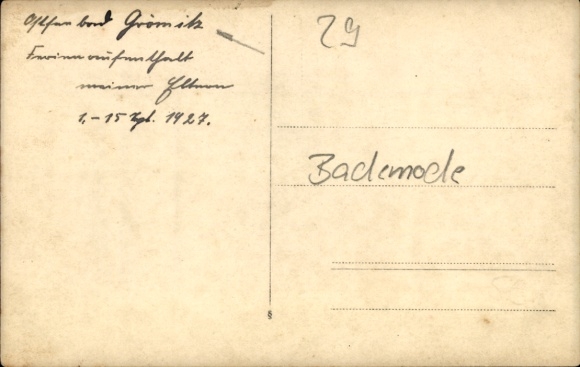 Ostseebad Grömitz
Ferienaufenthalt
meiner Eltern
1.-15 Spt. 1927.
29
Bademode
§